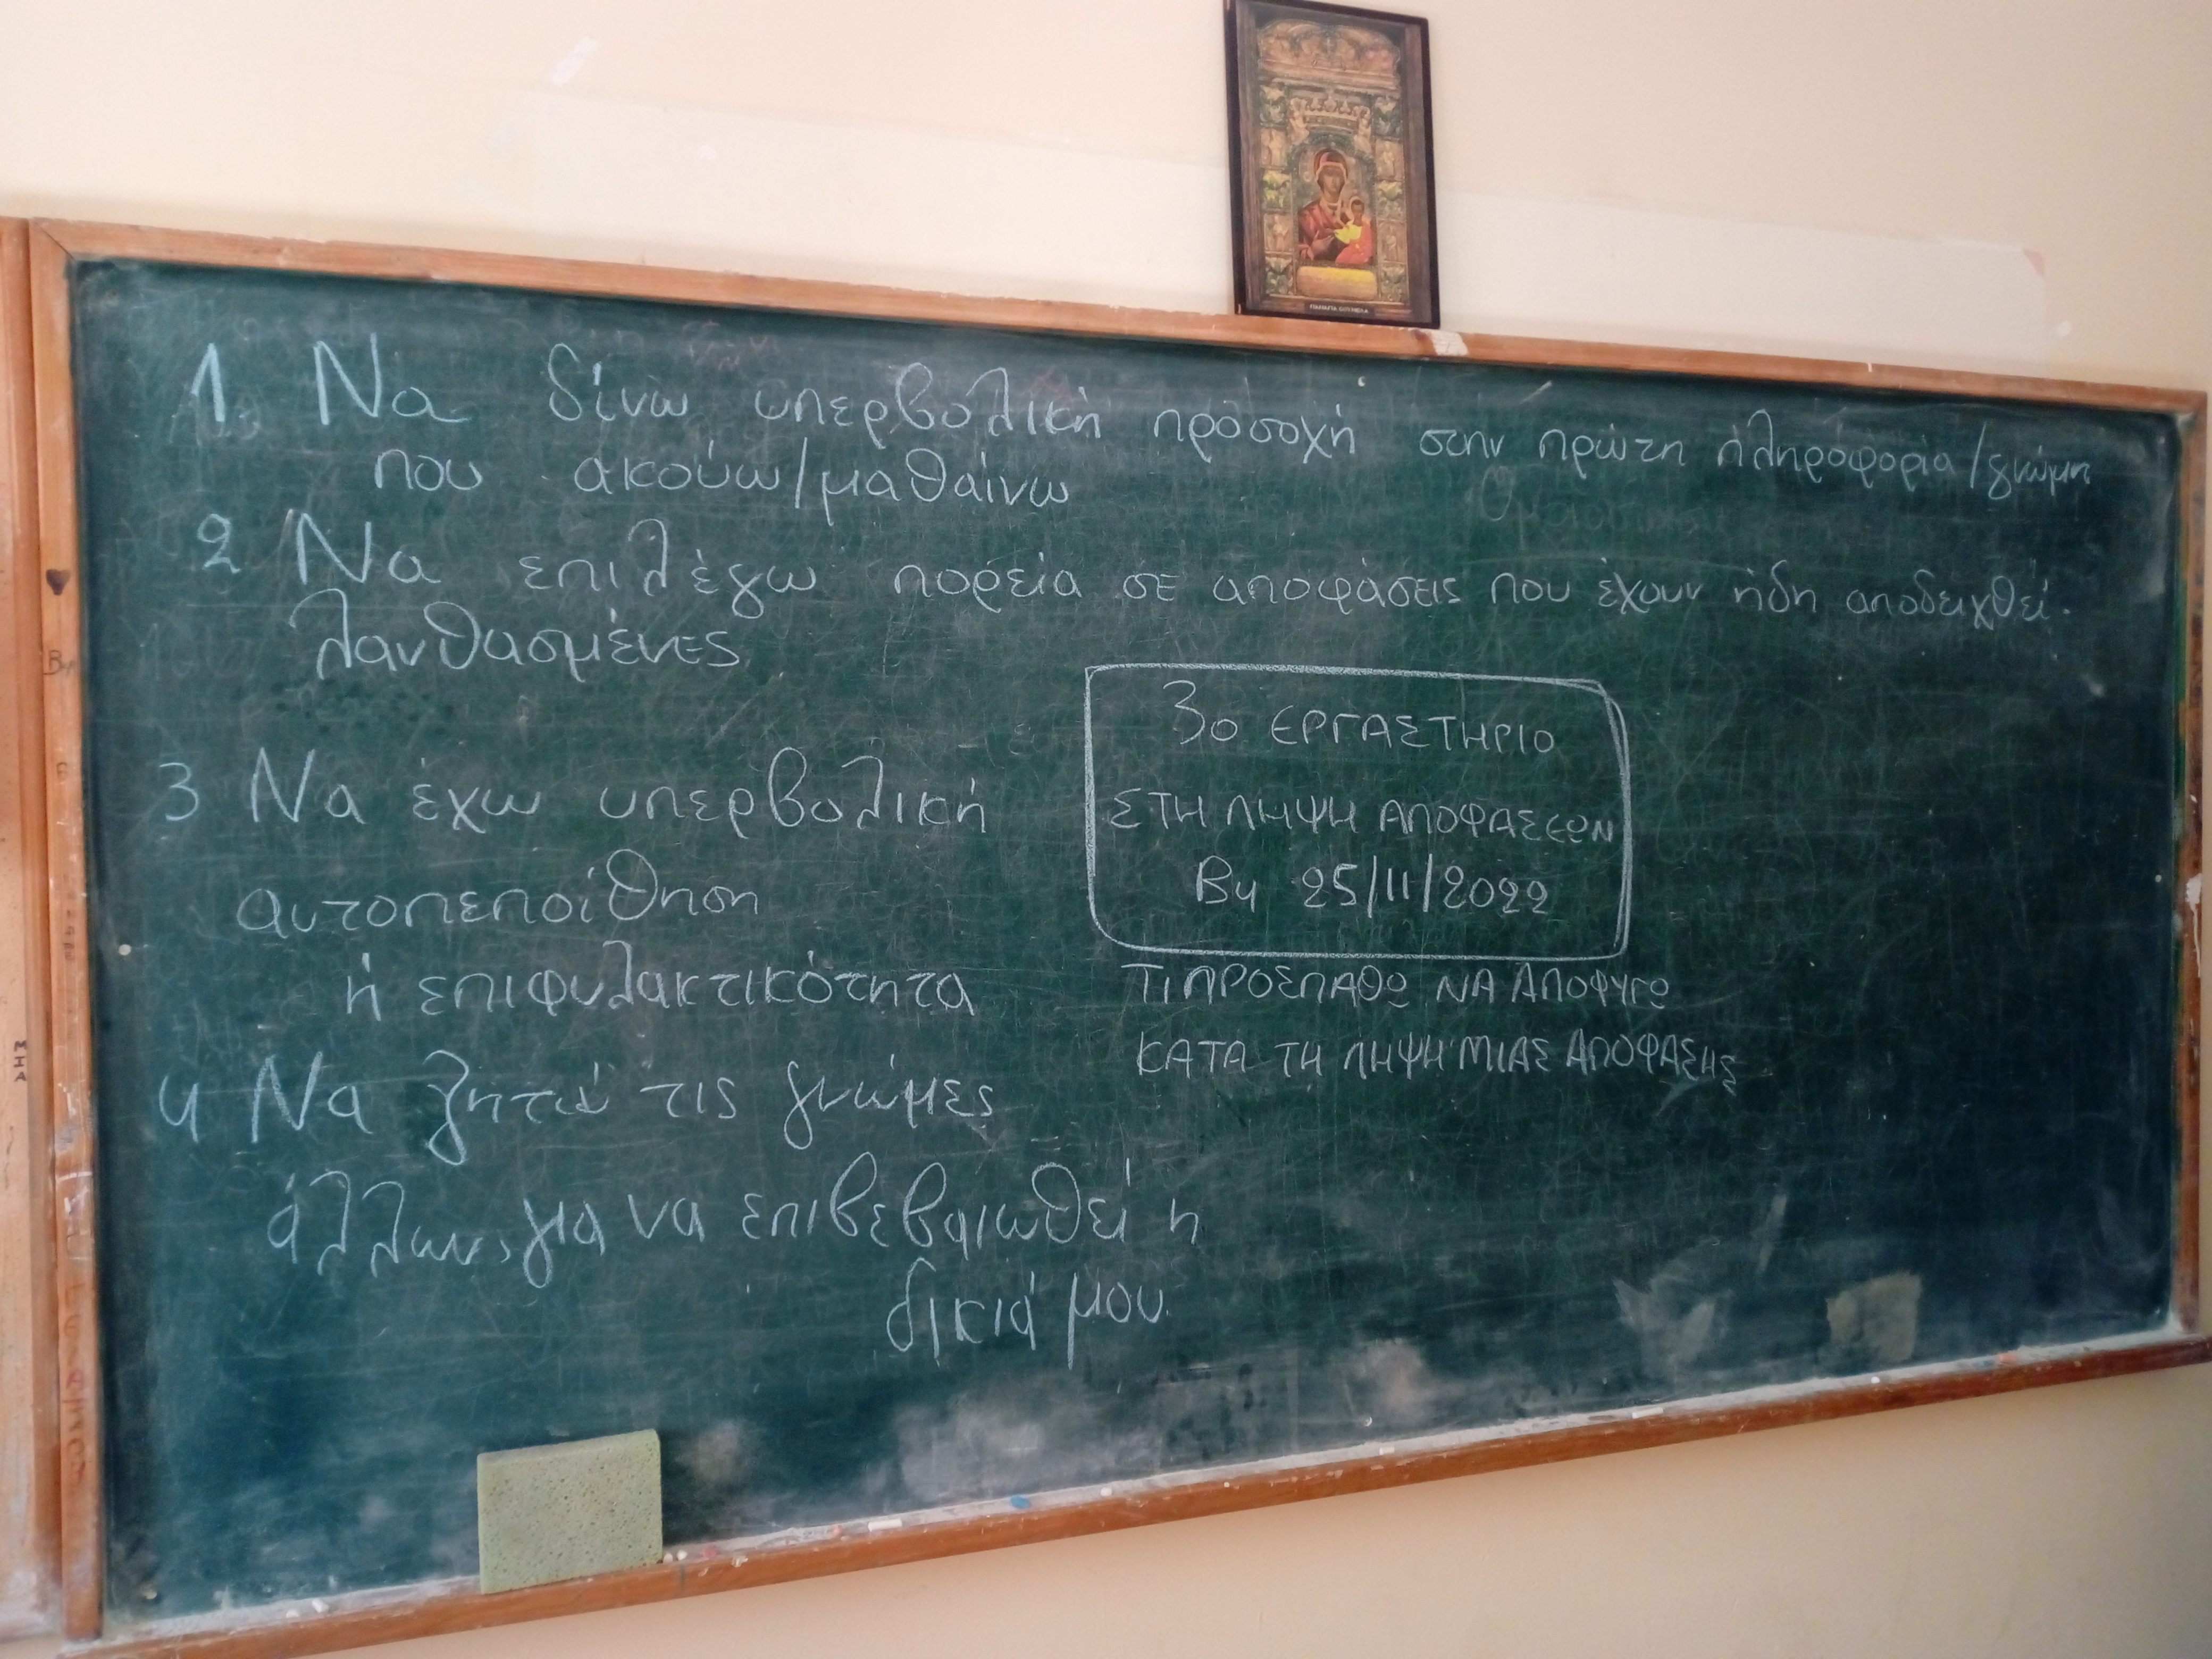 1. Να δίνω υπερβολική προσοχή στην πρώτη πληροφορία/γνώμη
που ακούω/μαθαίνω
2 Να επιλέγω πορεία σε αποφάσεις που έχουν ήδη αποδειχθεί
λανθασμένες
3 Να έχω υπερβολική
αυτοπεποίθηση
ή επιφυλακτικότητα
4 Να ζητώ τις γνώμες
άλλων, για να επιβεβαιωθεί η
δικιά μου
3ο ΕΡΓΑΣΤΗΡΙΟ
ΣΤΗ ΛΗΨΗ ΑΠΟΦΑΣΕΩΝ
Β4 25/11/2022
ΤΙ ΠΡΟΣΠΑΘΩ ΝΑ ΑΠΟΦΥΓΩ
ΚΑΤΑ ΤΗ ΛΗΨΗ ΜΙΑΣ ΑΠΟΦΑΣΗΣ
ΜΙΑ